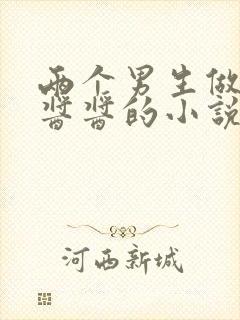 两个男生做
酱酱的小说
河西新城